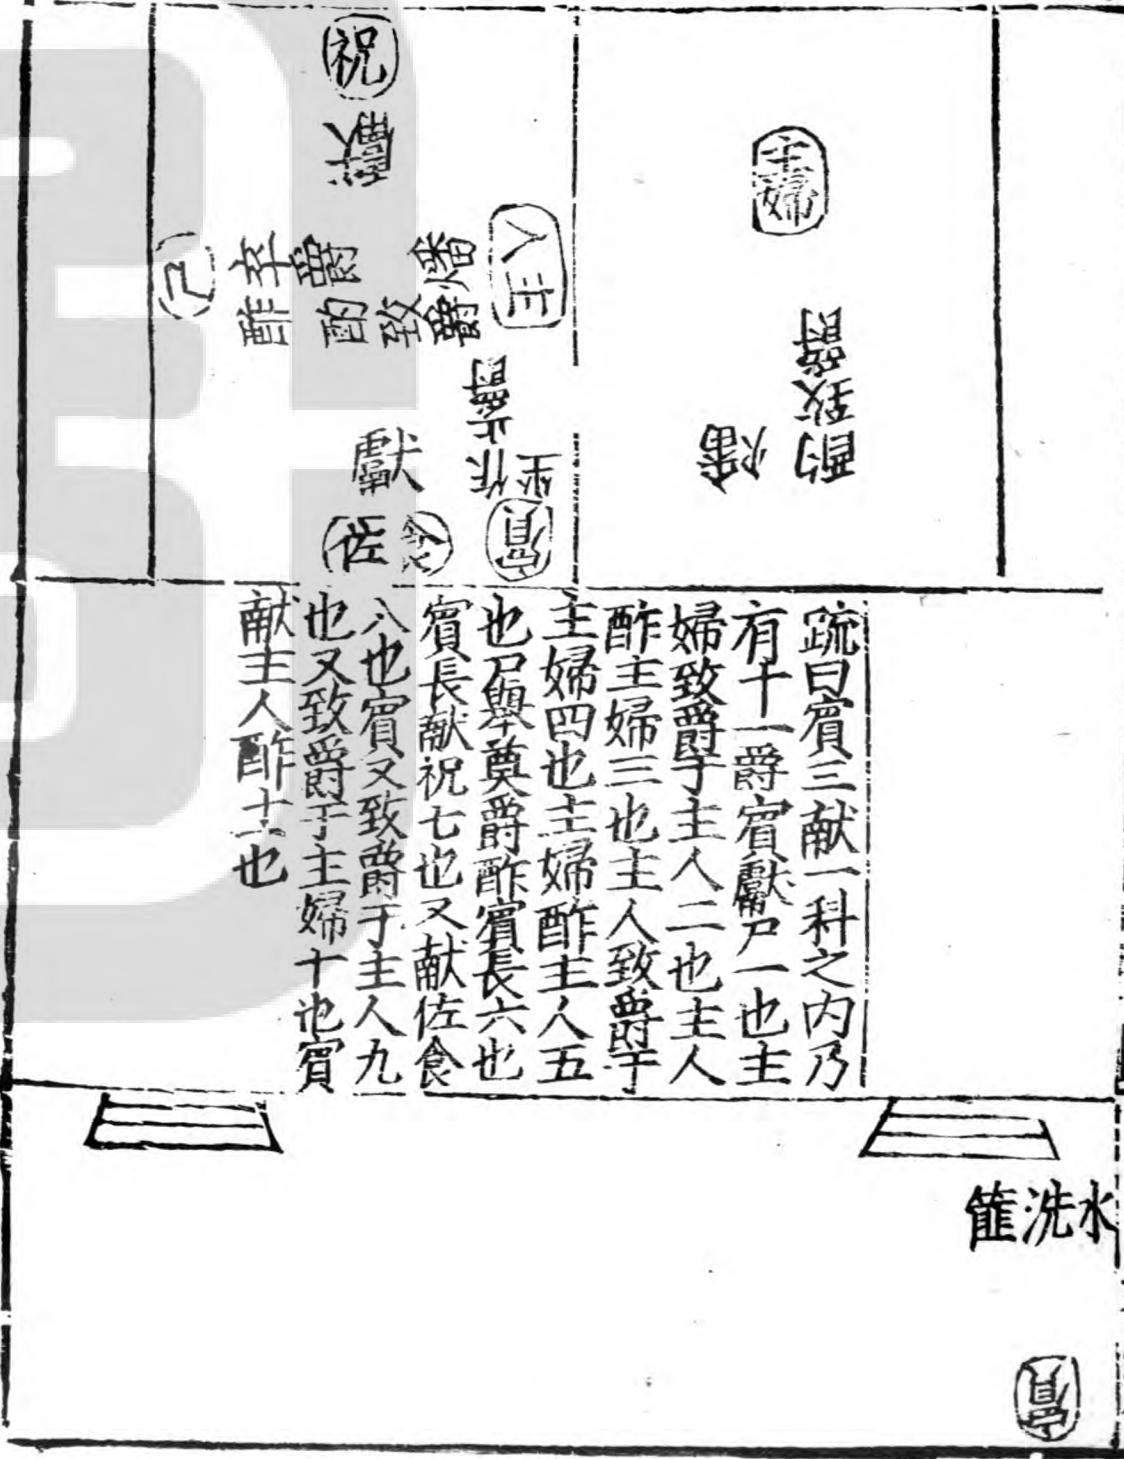 主婦
爵
致
酌
燔
主人
燔
爵
致爵
酌
卒爵
酢
尸
祝
獻
爵
止
作
坐
賓
獻
佐食
疏曰賓三献一科之内乃
有十一爵賓獻尸一也主
婦致爵于主人二也主人
酢主婦三也主人致爵于
主婦四也主婦酢主人五
也尸舉奠爵酢賓長六也
賓長献祝七也又献佐食
八也賓又致爵于主人九
也又致爵于主婦十也賓
献主人酢十一也
水
洗
篚
賓